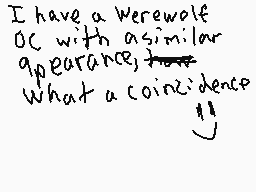 I have a werewolf
OC with a similar
apearance,
what a coincidence